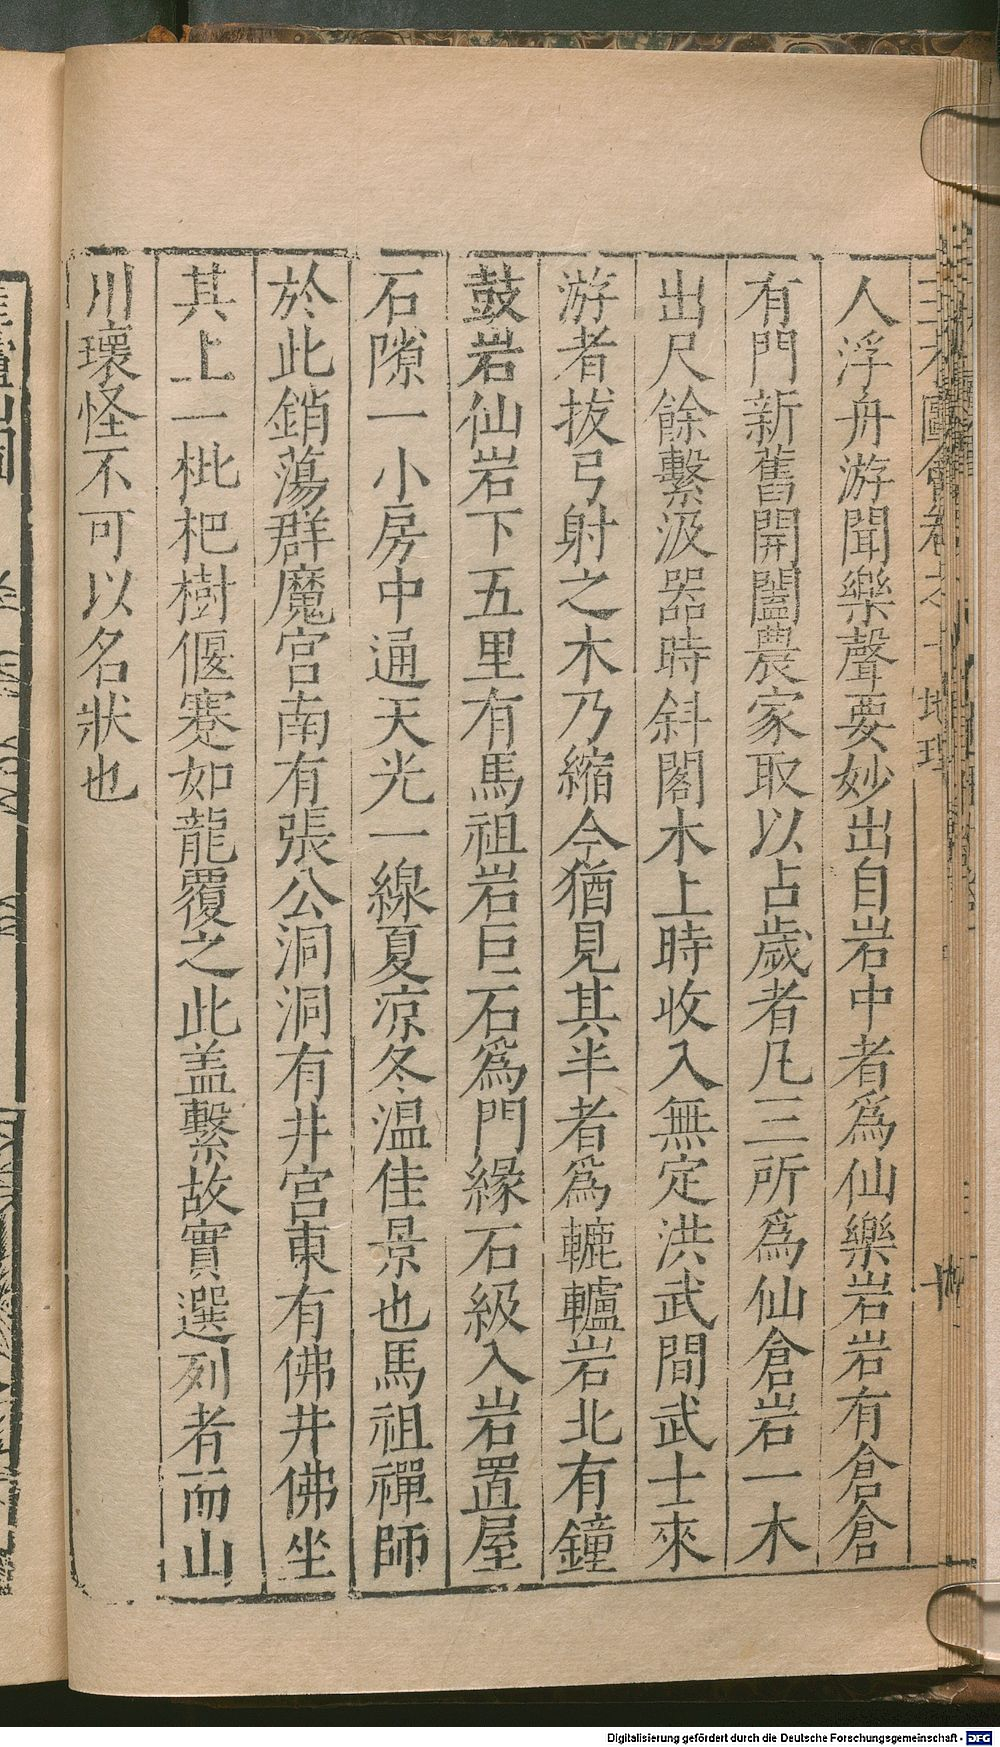 人浮舟游聞樂聲要妙出自岩中者爲仙樂岩岩有倉倉
有門新舊開闔農家取以占歲者凡三所爲仙倉岩一木
出尺餘繫汲器時斜閣木上時收入無定洪武間武士來
游者拔弓射之木乃縮今猶見其半者爲轆轤岩北有鐘
鼓岩仙岩下五里有馬祖岩巨石爲門緣石級入岩置屋
石隙一小房中通天光一線夏凉冬温佳景也馬祖禪師
於此銷蕩群魔宫南有張公洞洞有井宫東有佛井佛坐
其上一枇杷樹偃蹇如龍覆之此盖繫故實選列者而山
川瓌怪不可以名狀也
地理
Digitalisierung gefördert durch die Deutsche Forschungsgemeinschaft - DFG